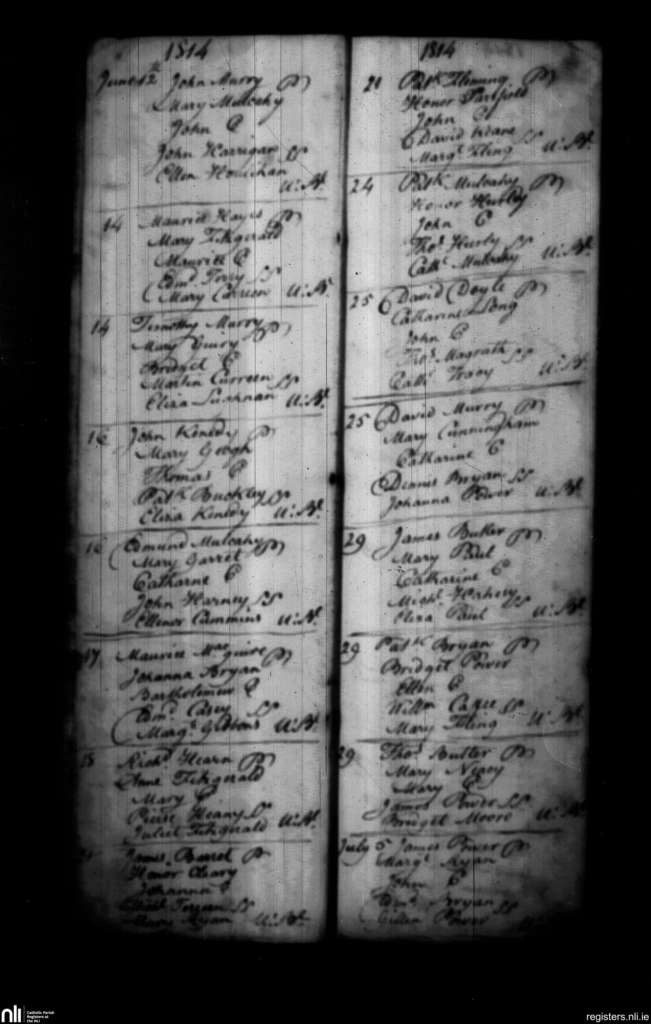 1814
June 12th John Murry P
Mary Mulcahy
John C
John Harrigan SS
Ellen Hourihan
U: Bk.
14 Maurice Hayes P
Mary Fitzgerald
Maurice C
Edmd. SS
Mary U: Bk.
14 Timothy Murry P
Mary
Bridget C
Martin Curreen SS
Eliza U: Bk.
16 John Kenedy P
Mary Gough
Thomas C
Patk. Buckley SS
Eliza Kenedy U: Bk.
16 Edmund Mulcahy P
Mary Garret
Catharne C
John Harney SS
Ellenor Cummins U: Bk.
17 Maurice Macguire P
Johanna Bryan
Bartholimew C
Edmd. Casey SS
Margt. U: Bk.
18 Richd. Hearn P
Anne Fitzgerald
Mary C
Pierse Heany SS
Juliet Fitzgerald U: Bk.
James Barret P
Honor Cleary
Johanna C
SS
Mary Ryan U: Bk.
1814
21 Patk. Fleming P
Honor
John C
David Keane SS
Margt. U: Bk.
24 Patk. Mulcahy P
Honor Hurley
John C
Thos. Hurly SS
Cathe. Mulcahy U: Bk.
25 David Doyle P
Catharine Long
John C
Thos. Magrath SS
Cathe. Tracy U: Bk.
25 David Murry P
Mary Cunningham
Catharine C
Dennis Bryan SS
Johanna Power U: Bk.
29 James Butler P
Mary Paul
Catharine C
Michl. SS
Eliza Paul U: Bk.
29 Patk. Bryan P
Bridget Power
Ellen C
Willm. SS
Mary U: Bk.
29 Thos. Butler P
Mary Neary
Mary C
James Power SS
Bridget Moore U: Bk.
July 5 James Power P
Margt. Ryan
John C
Edmd. Bryan SS
Power
nli
Catholic Parish
Registers at
the NLI
registers.nli.ie